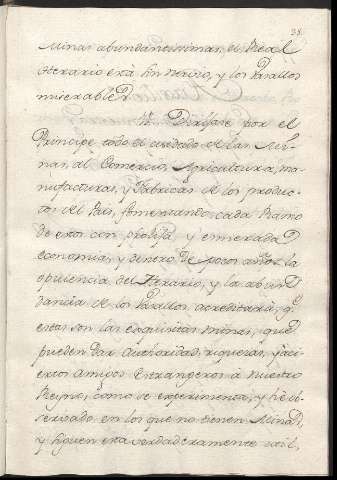 38.
Minas abundantissimas, el Real
Herario està sin nervio, y los Vasallos
miserables.
Dirijase por el
Principe todo el cuidado de las Mi-
nas, al Comercio, Agricultura, ma-
nufacturas, y Fabricas de los produc-
tos del Pais, fomentando cada Ramo
de estos con prolija y esmerada
economia, y dentro de pocos años la
opulencia del Herario, y la abun-
dancia de los Vasallos acreditarà, qe
estas son las exquisitas minas, que
pueden dar authoridad, riquezas, y aci-
ertos amigos Estrangeros à nuestro
Reyno, como se experimenta, y hè ob-
servado en los que no tienen Minas,
y siguen esta verdaderamente util,